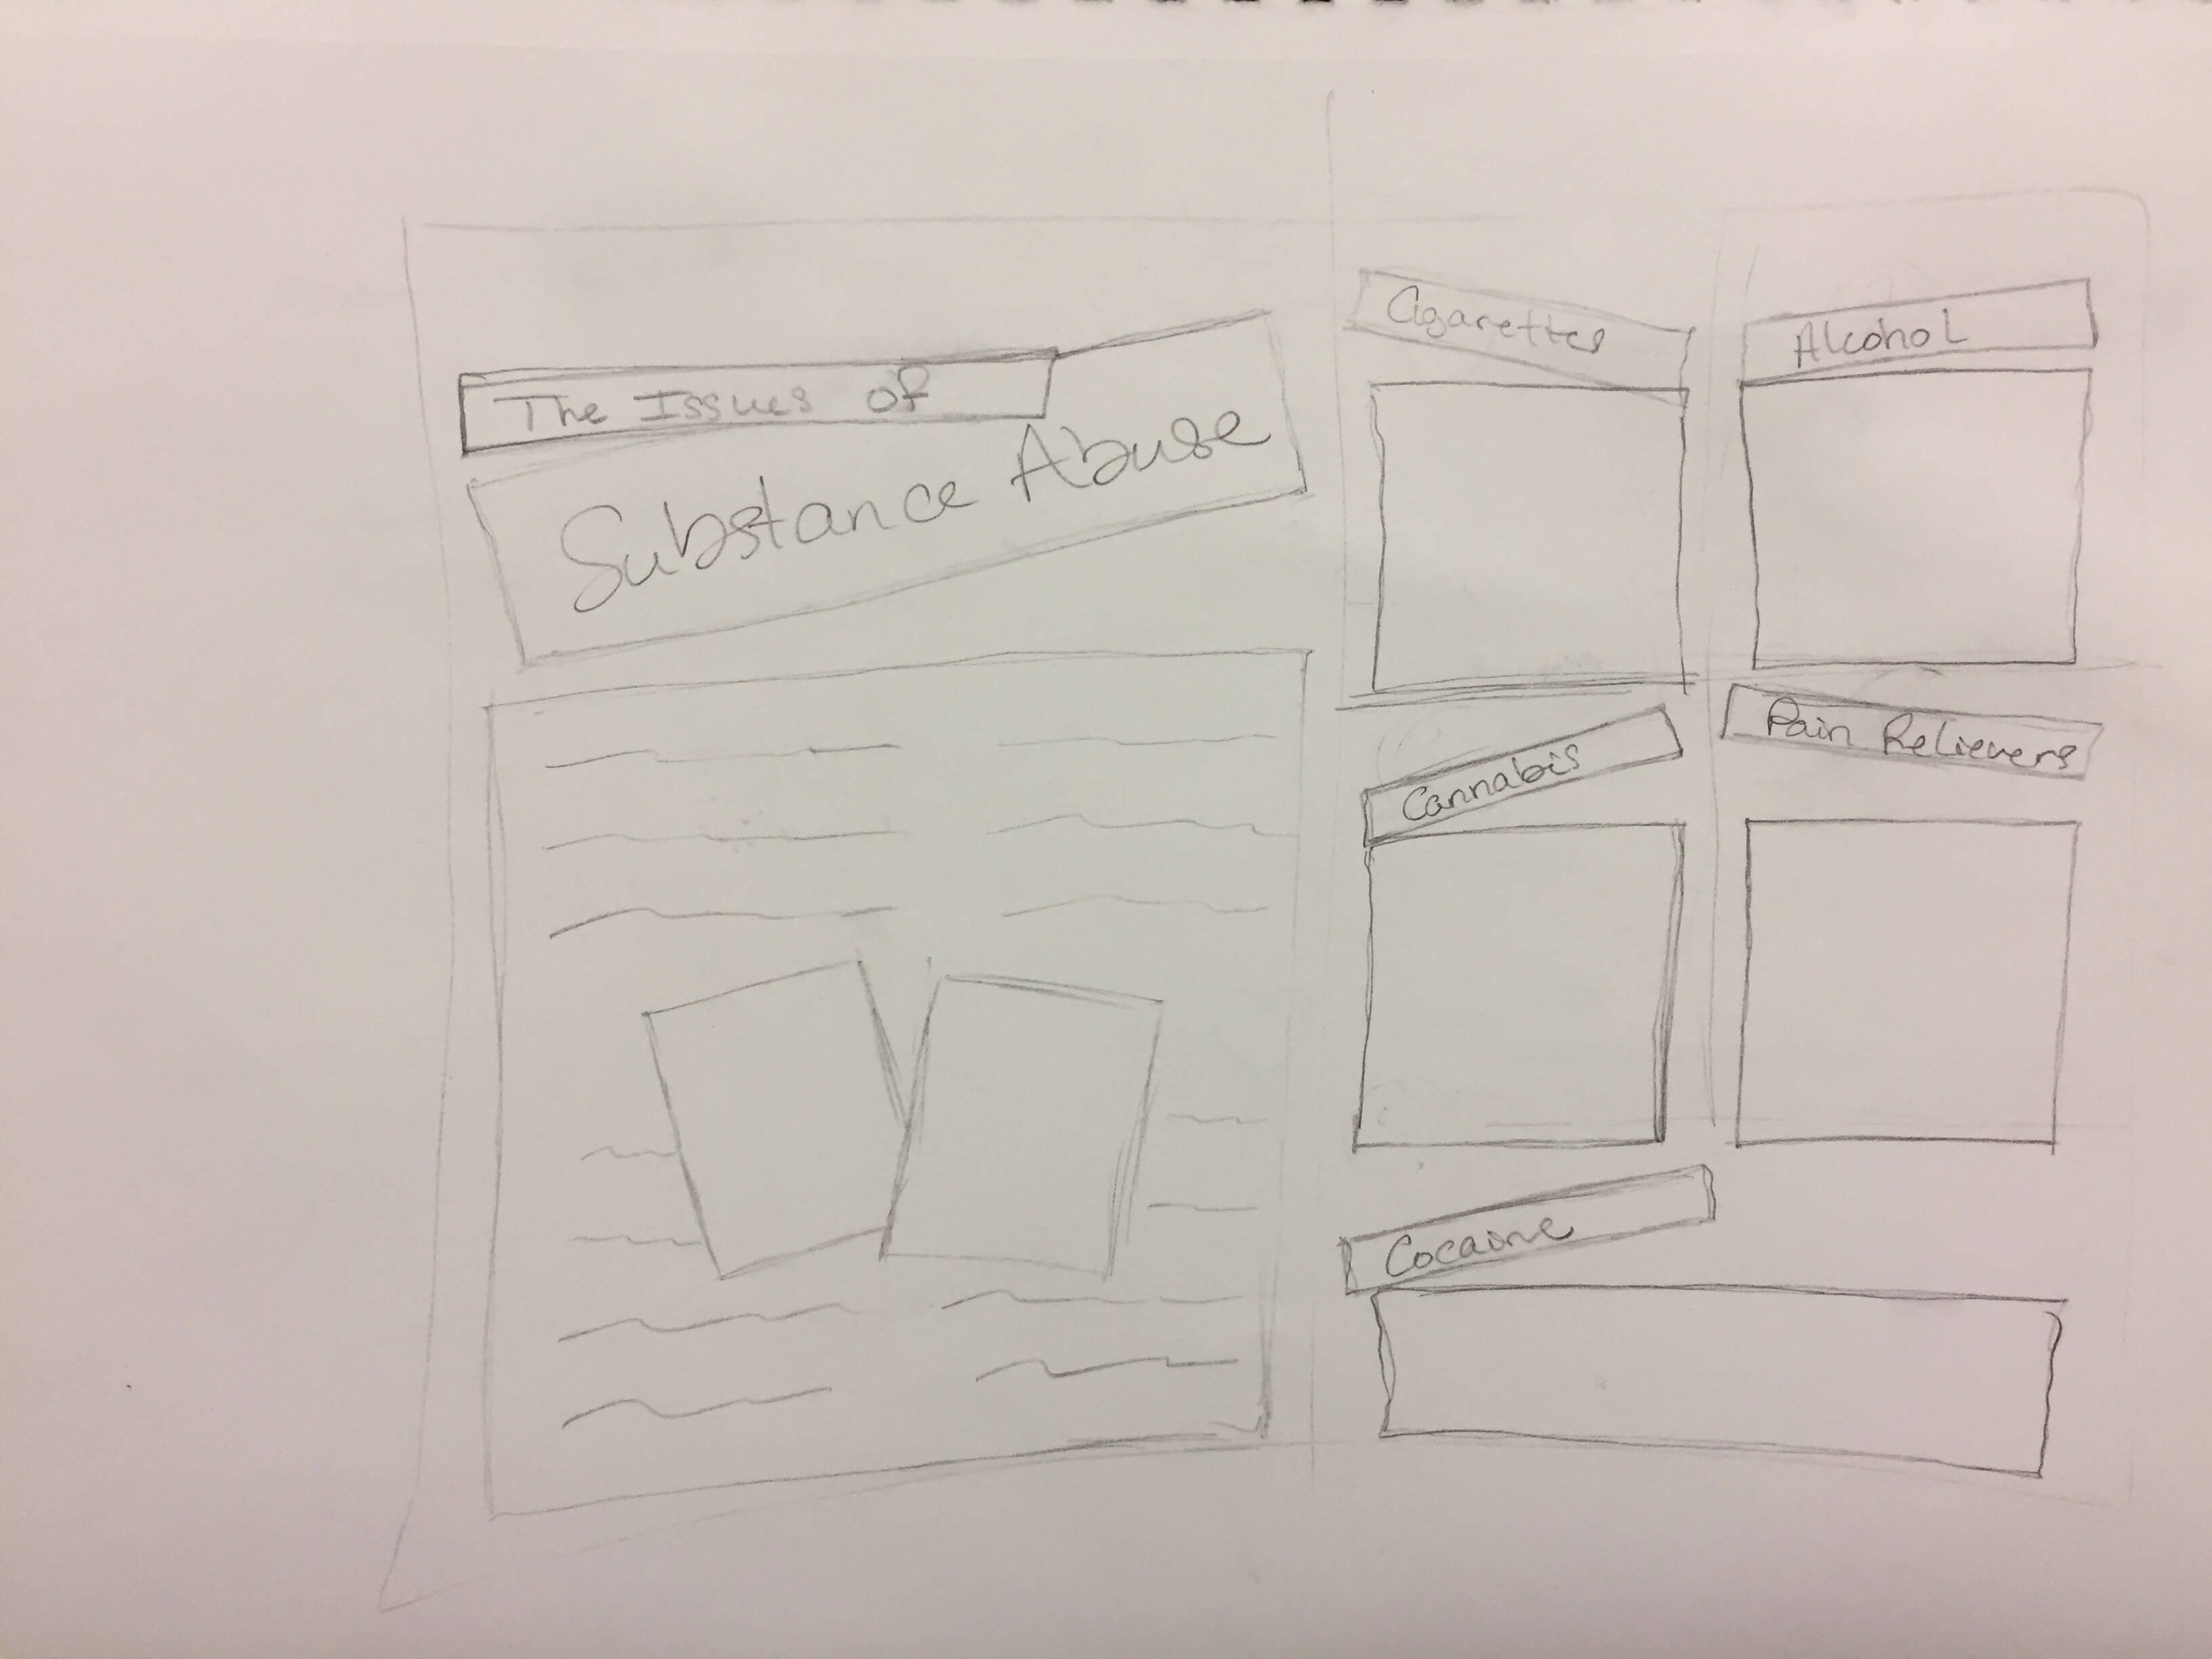 The Issues of
Substance Abuse
Cigarettes
Alcohol
Cannabis
Pain Relievers
Cocaine